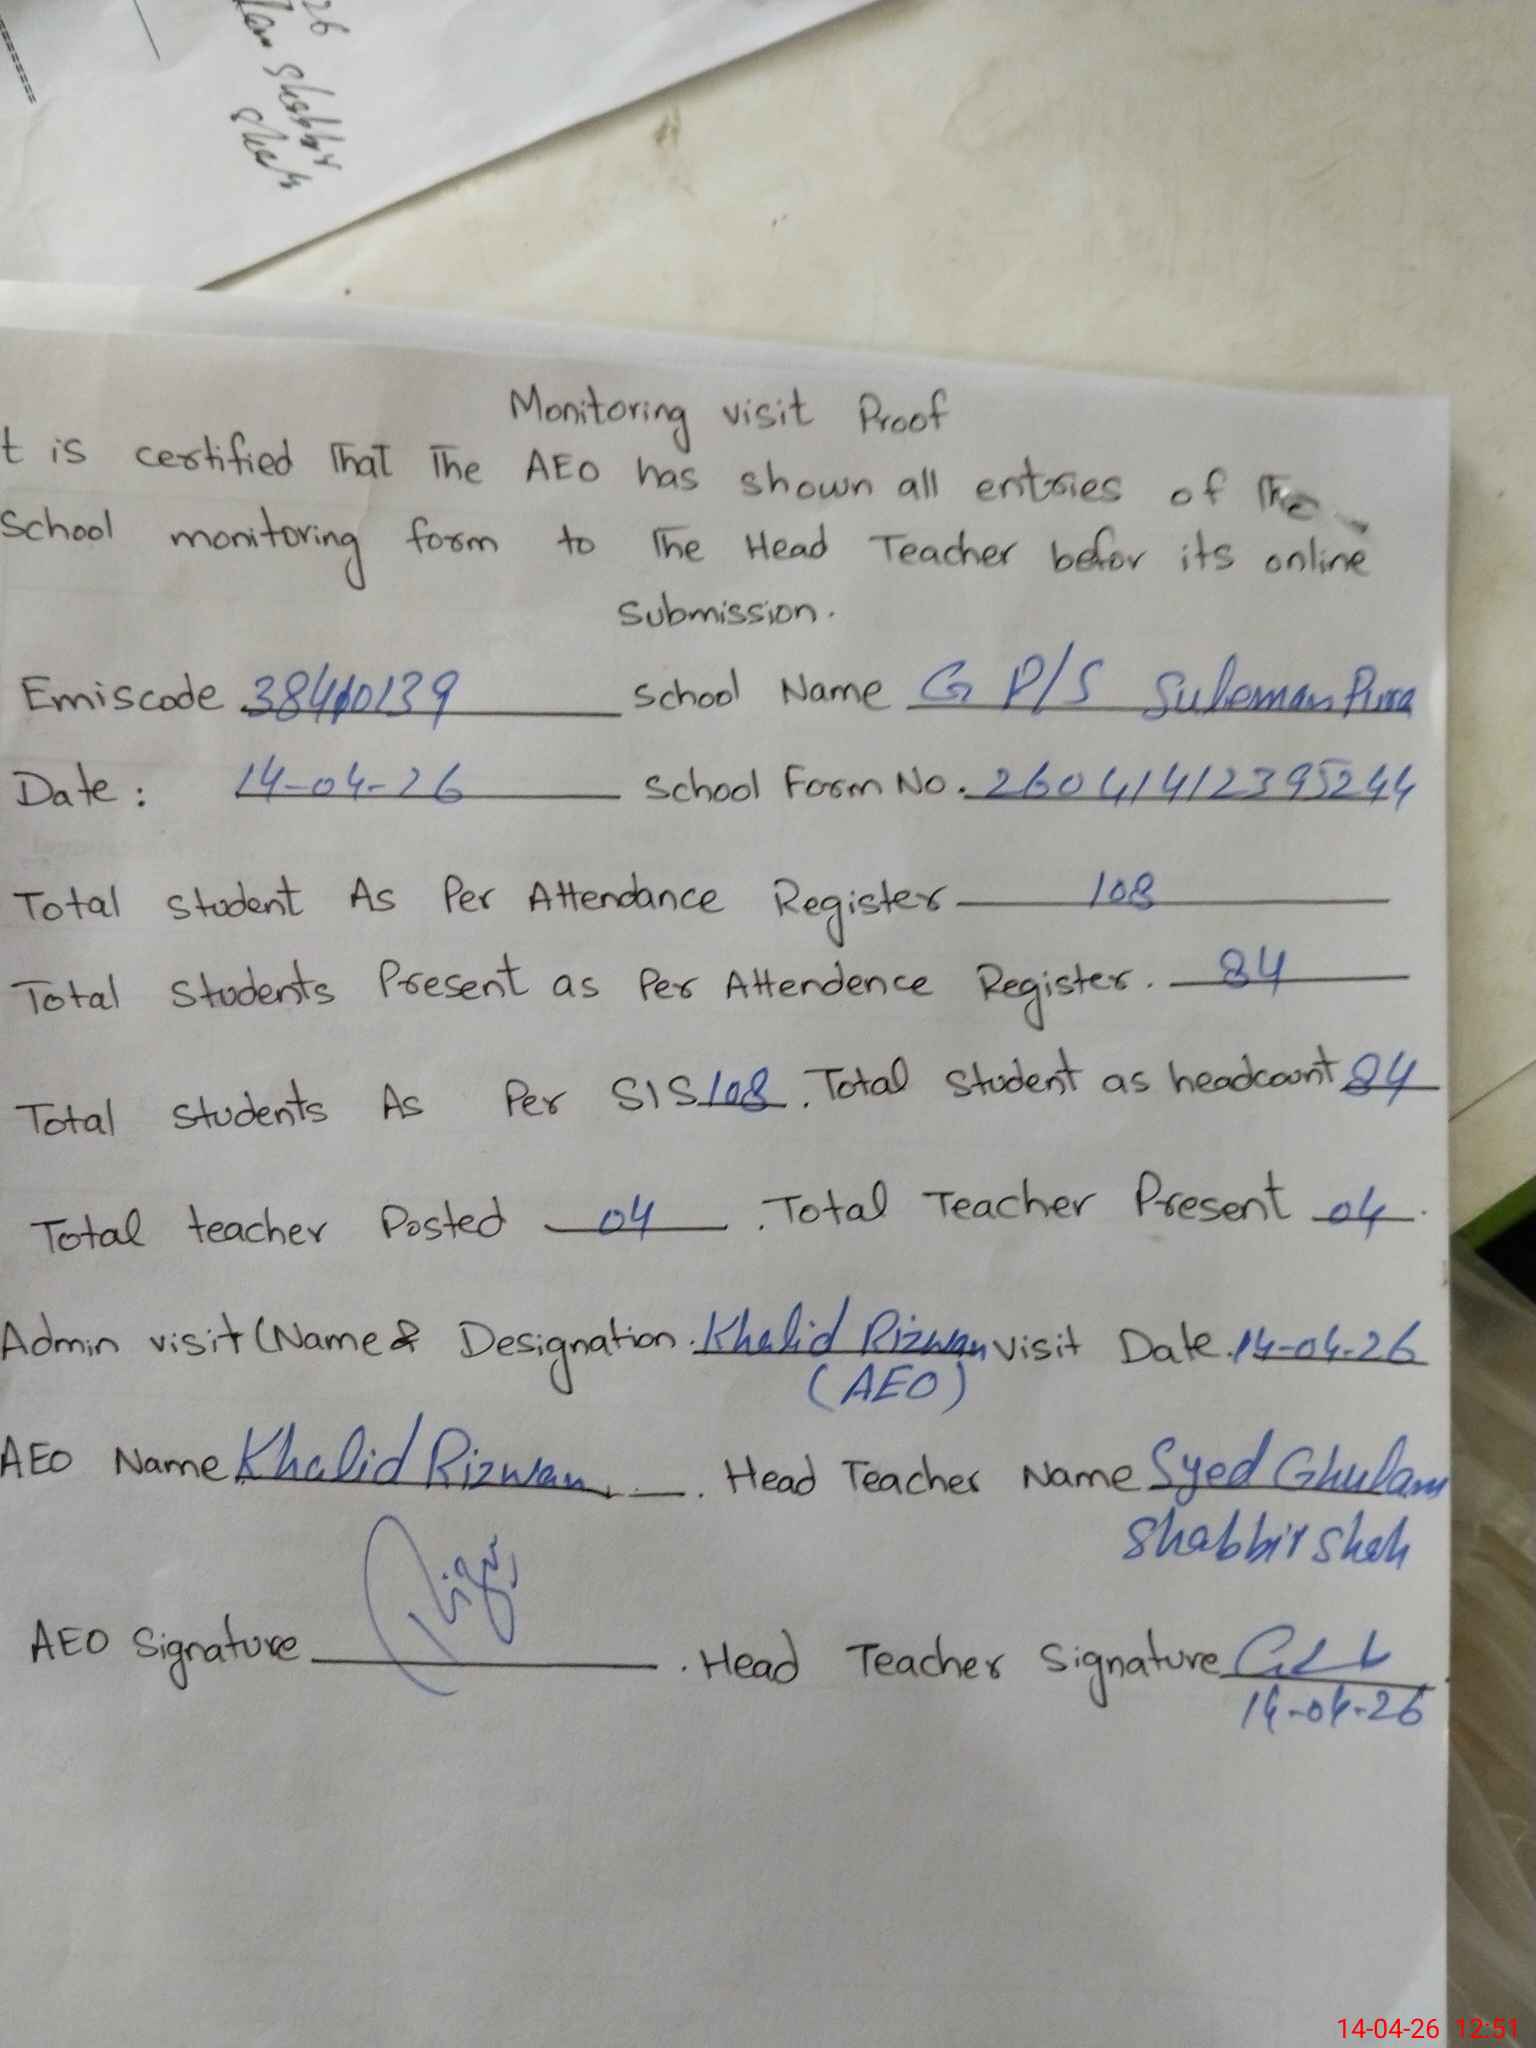 26
Shabbir
Shah
Monitoring visit Proof
t is certified That The AEO has shown all entries of The
School monitoring form to The Head Teacher befor its online
Submission.
Emiscode 38410139 School Name G P/S Suleman Pura
Date: 14-04-26 School Form No. 26041412395244
Total Student As Per Attendance Register 108
Total Students Present as Per Attendence Register. 84
Total Students As Per SIS 108. Total Student as headcount 84
Total teacher Posted 04. Total Teacher Present 04.
Admin visit (Name & Designation. Khalid Rizwan visit Date. 14-04-26
(AEO)
AEO Name Khalid Rizwan. Head Teacher Name Syed Ghulam
Shabbir Shah
AEO Signature . Head Teacher Signature
14-04-26
14-04-26 12:51